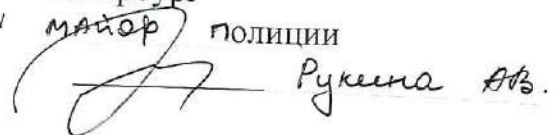 майор полиции
Рукина АВ.